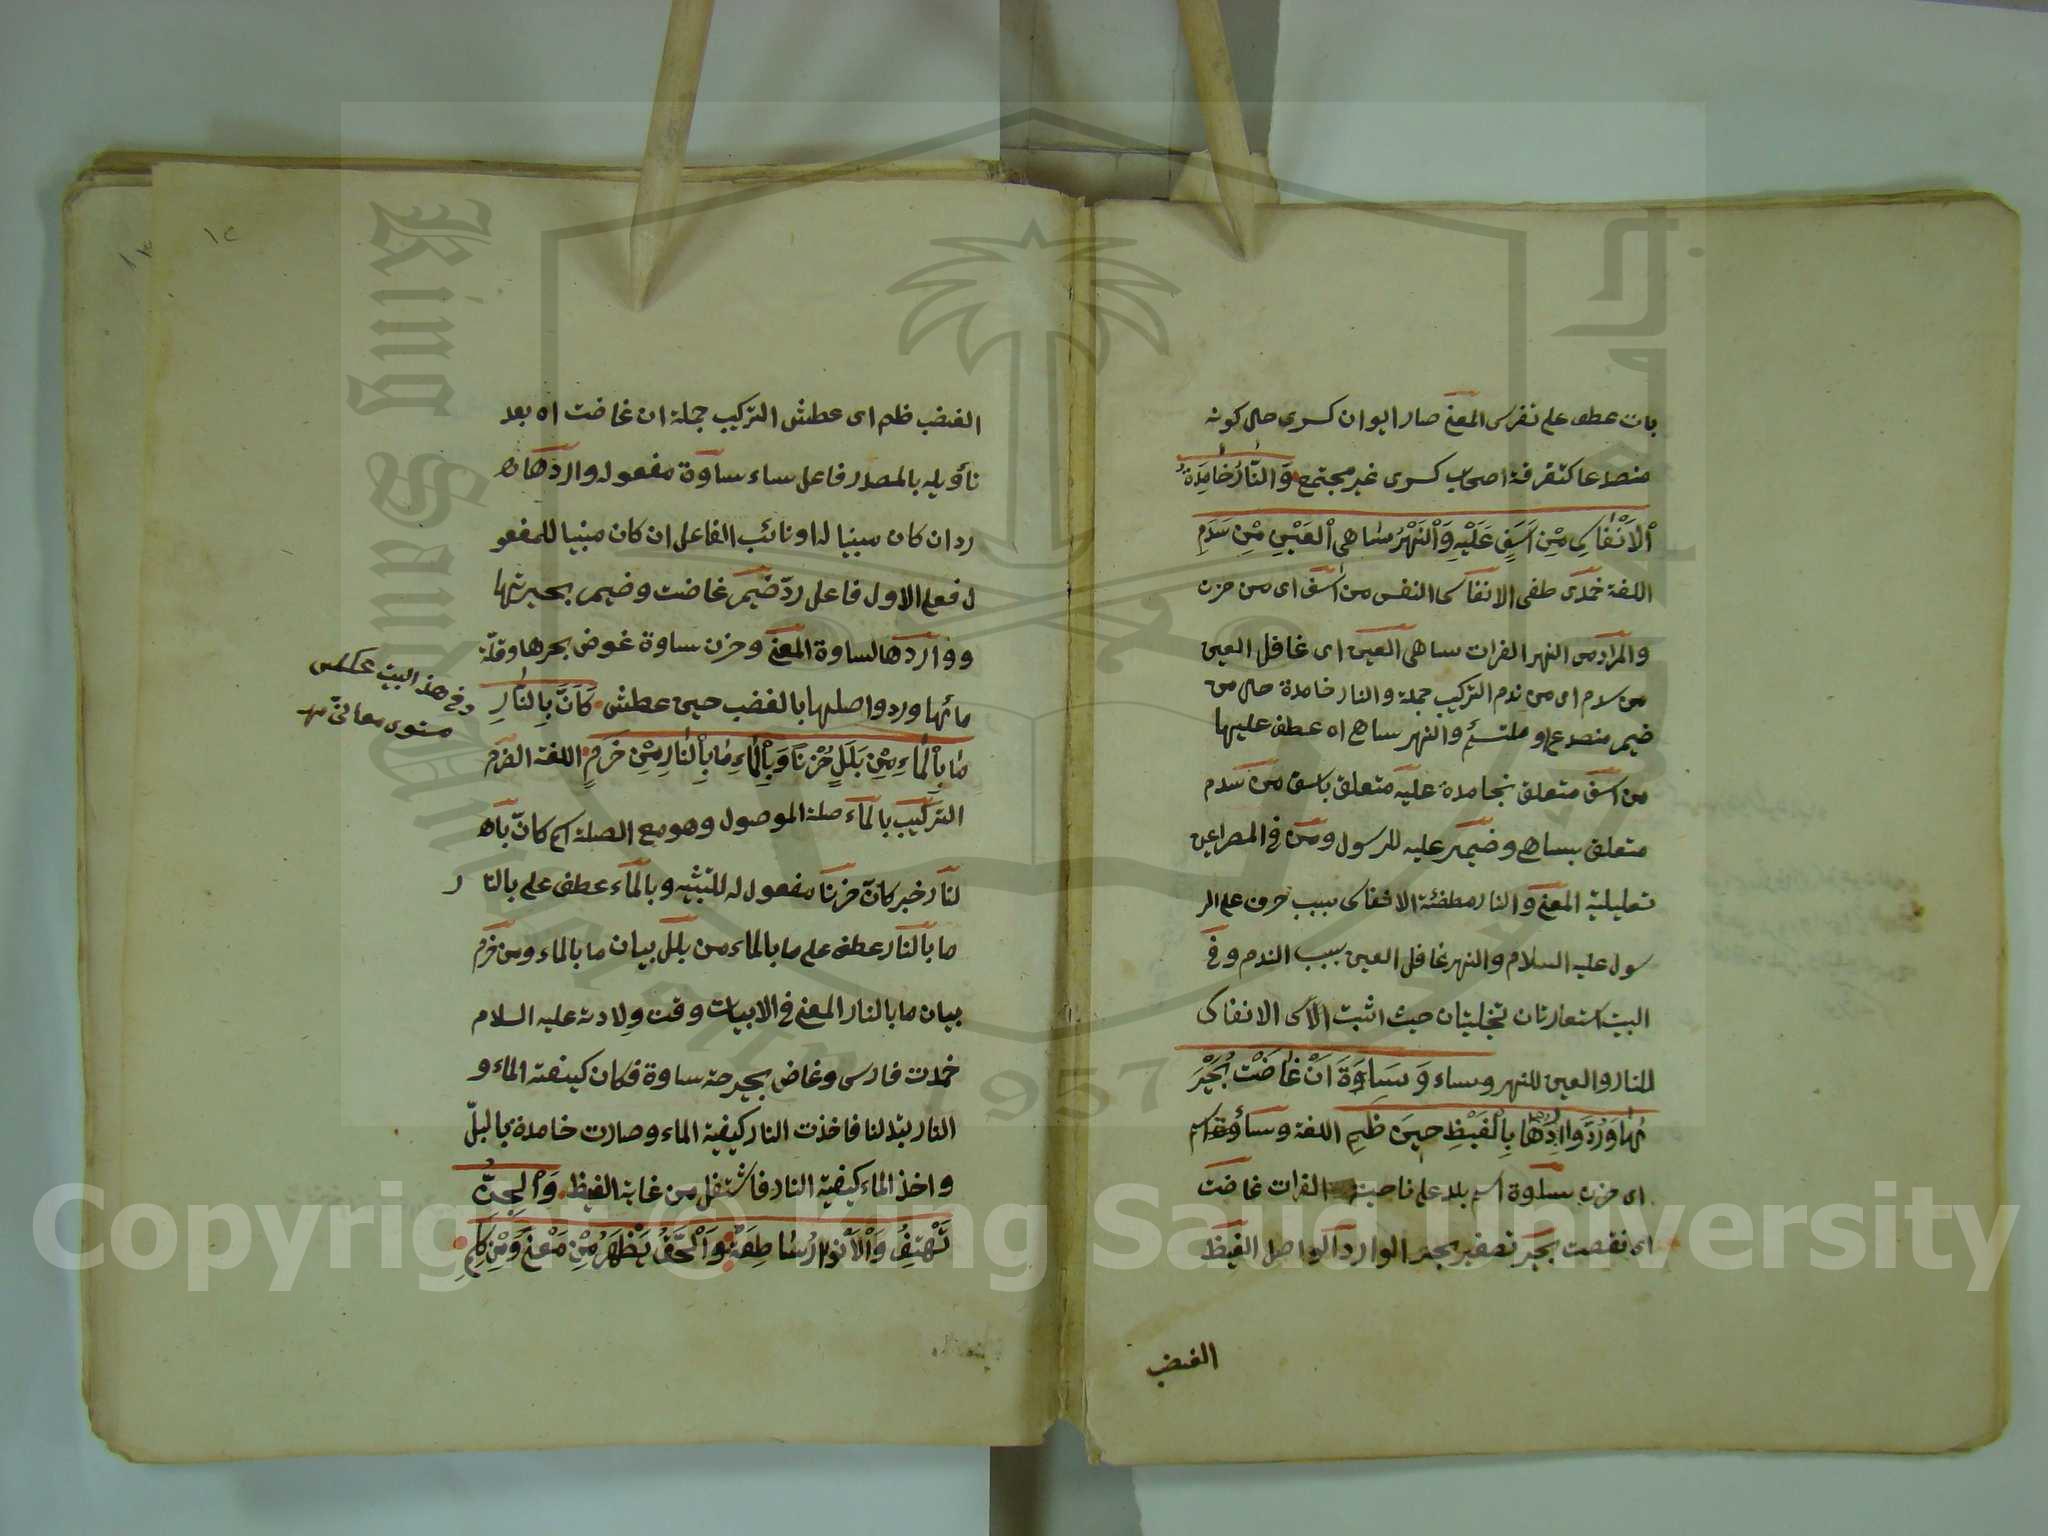 بات عطف على نفرس المعنى صار ايوان كسرى حال كونه
منصدعا كتفرقة اصحاب كسرى غير مجتمع وَالنَّارُ خَامِدَةُ
اْلاَنْفَاسِ مِنْ اَسَفٍ عَلَيْهِ وَالنَّهْرُ سَاهِى الْعَيْنِ مِنْ سَدَمِ
اللغة خمدى طفى الانفاس النفس من اسف اى من حزن
والمراد من النهر الفرات ساهى العين اى غافل العين
من سدم اى من ندم التركيب جملة والنار خامدة حال من
ضمير منصدع او ملتئم والنهر ساهى اه عطف عليها
من اسف متعلق بخامدة عليه متعلق باسف من سدم
متعلق بساهى وضمير عليه للرسول ومن فى المصراعين
تعليلية المعنى والنار مطفئة الانفاس بسبب حزن على الر
سول عليه السلام والنهر غافل العين بسبب الندم وفى
البيت استعارتان تخيليتان حيث اثبت الاس الانفاس
للنار والعين للنهر وساء وَسَاءَ سَاوَةَ اَنْ غَاضَتْ بُحَيْرَ
تُهَا وَرُدَّ وَارِدُهَا بِالْغَيْظِ حِينَ ظَمِ اللغة وساء
اى حزن ساوة اسم بلد على ناحية الفرات غاضت
اى نقصت بحير تصغير بحر الوارد الواصل الغيظ
الغيض
١٢
الغيض ظم اى عطش التركيب جملة ان غاضت اه بعد
تأويله بالمصدر فاعل ساء ساوة مفعوله واردها
رد ان كان مبنيا له او نائب الفاعل ان كان مبنيا للمفعو
ل فعلى الاول فاعل ردّ ضمير غاضت وضمير بحيرتها
وواردها لساوة المعنى وحزن ساوة غوض بحرها وقلّة
مائها ورد واصلها بالغضب حين عطش كَاَنَّ بِالنَّارِ
مَا بِاْلمَاءِ مِنْ بَلَلٍ حُزْنًا وَبِاْلمَاءِ مَا بِالنَّارِ مِنْ ضَرَمِ اللغة الضرم
التركيب بالماء صلة الموصول وهو مع الصلة اسم كانّ با
لنار خبر كانّ حزنا مفعول له للتشبيه وبالماء عطف على بالنار
ما بالنار عطف على ما بالماء من بلل بيان ما بالماء ومن ضرم
بيان ما بالنار المعنى فى الابيات وقت ولادته عليه السلام
خمدت فارس وغاض بحيرة ساوة فكان كيفية الماء و
النار بتدلنا فاخذت النار كيفية الماء وصارت خامدة بالبلّ
واخذ الماء كيفية النار فاشتغل من غاية الغيظ وَاْلجِنُّ
تَهْتِفُ وَاْلاَنْوَارُ سَاطِعَةٌ وَاْلحَقُّ يَظْهَرُ مِنْ مَعْنًى وَمِنْ كَلِمِ
وفى هذ البيت عكس
مستوى معانى
King Saud University
جامعة
1957
Copyright © King Saud University